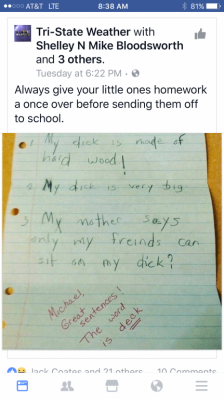 AT&T LTE 8:38 AM 81%
Tri-State Weather with
Shelley N Mike Bloodsworth
and 3 others.
Tuesday at 6:22 PM ·
Always give your little ones homework
a once over before sending them off
to school.
1. My dick is made of
hard wood!
2. My dick is very big
3. My mother says
only my freinds can
sit on my dick?
Michael!
Great sentences!
The word
is deck
Jack Coates and 21 others 10 Comments